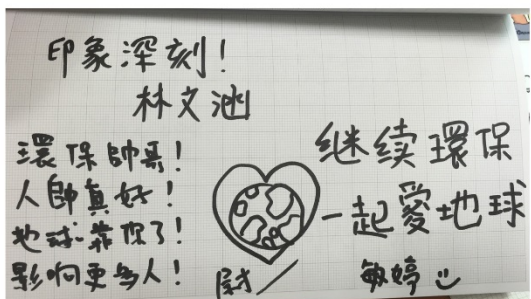 印象深刻!
林文涵
環保帥哥!
人帥真好!
地球靠你了!
影响更多人!
继续環保
一起愛地球
敏婷